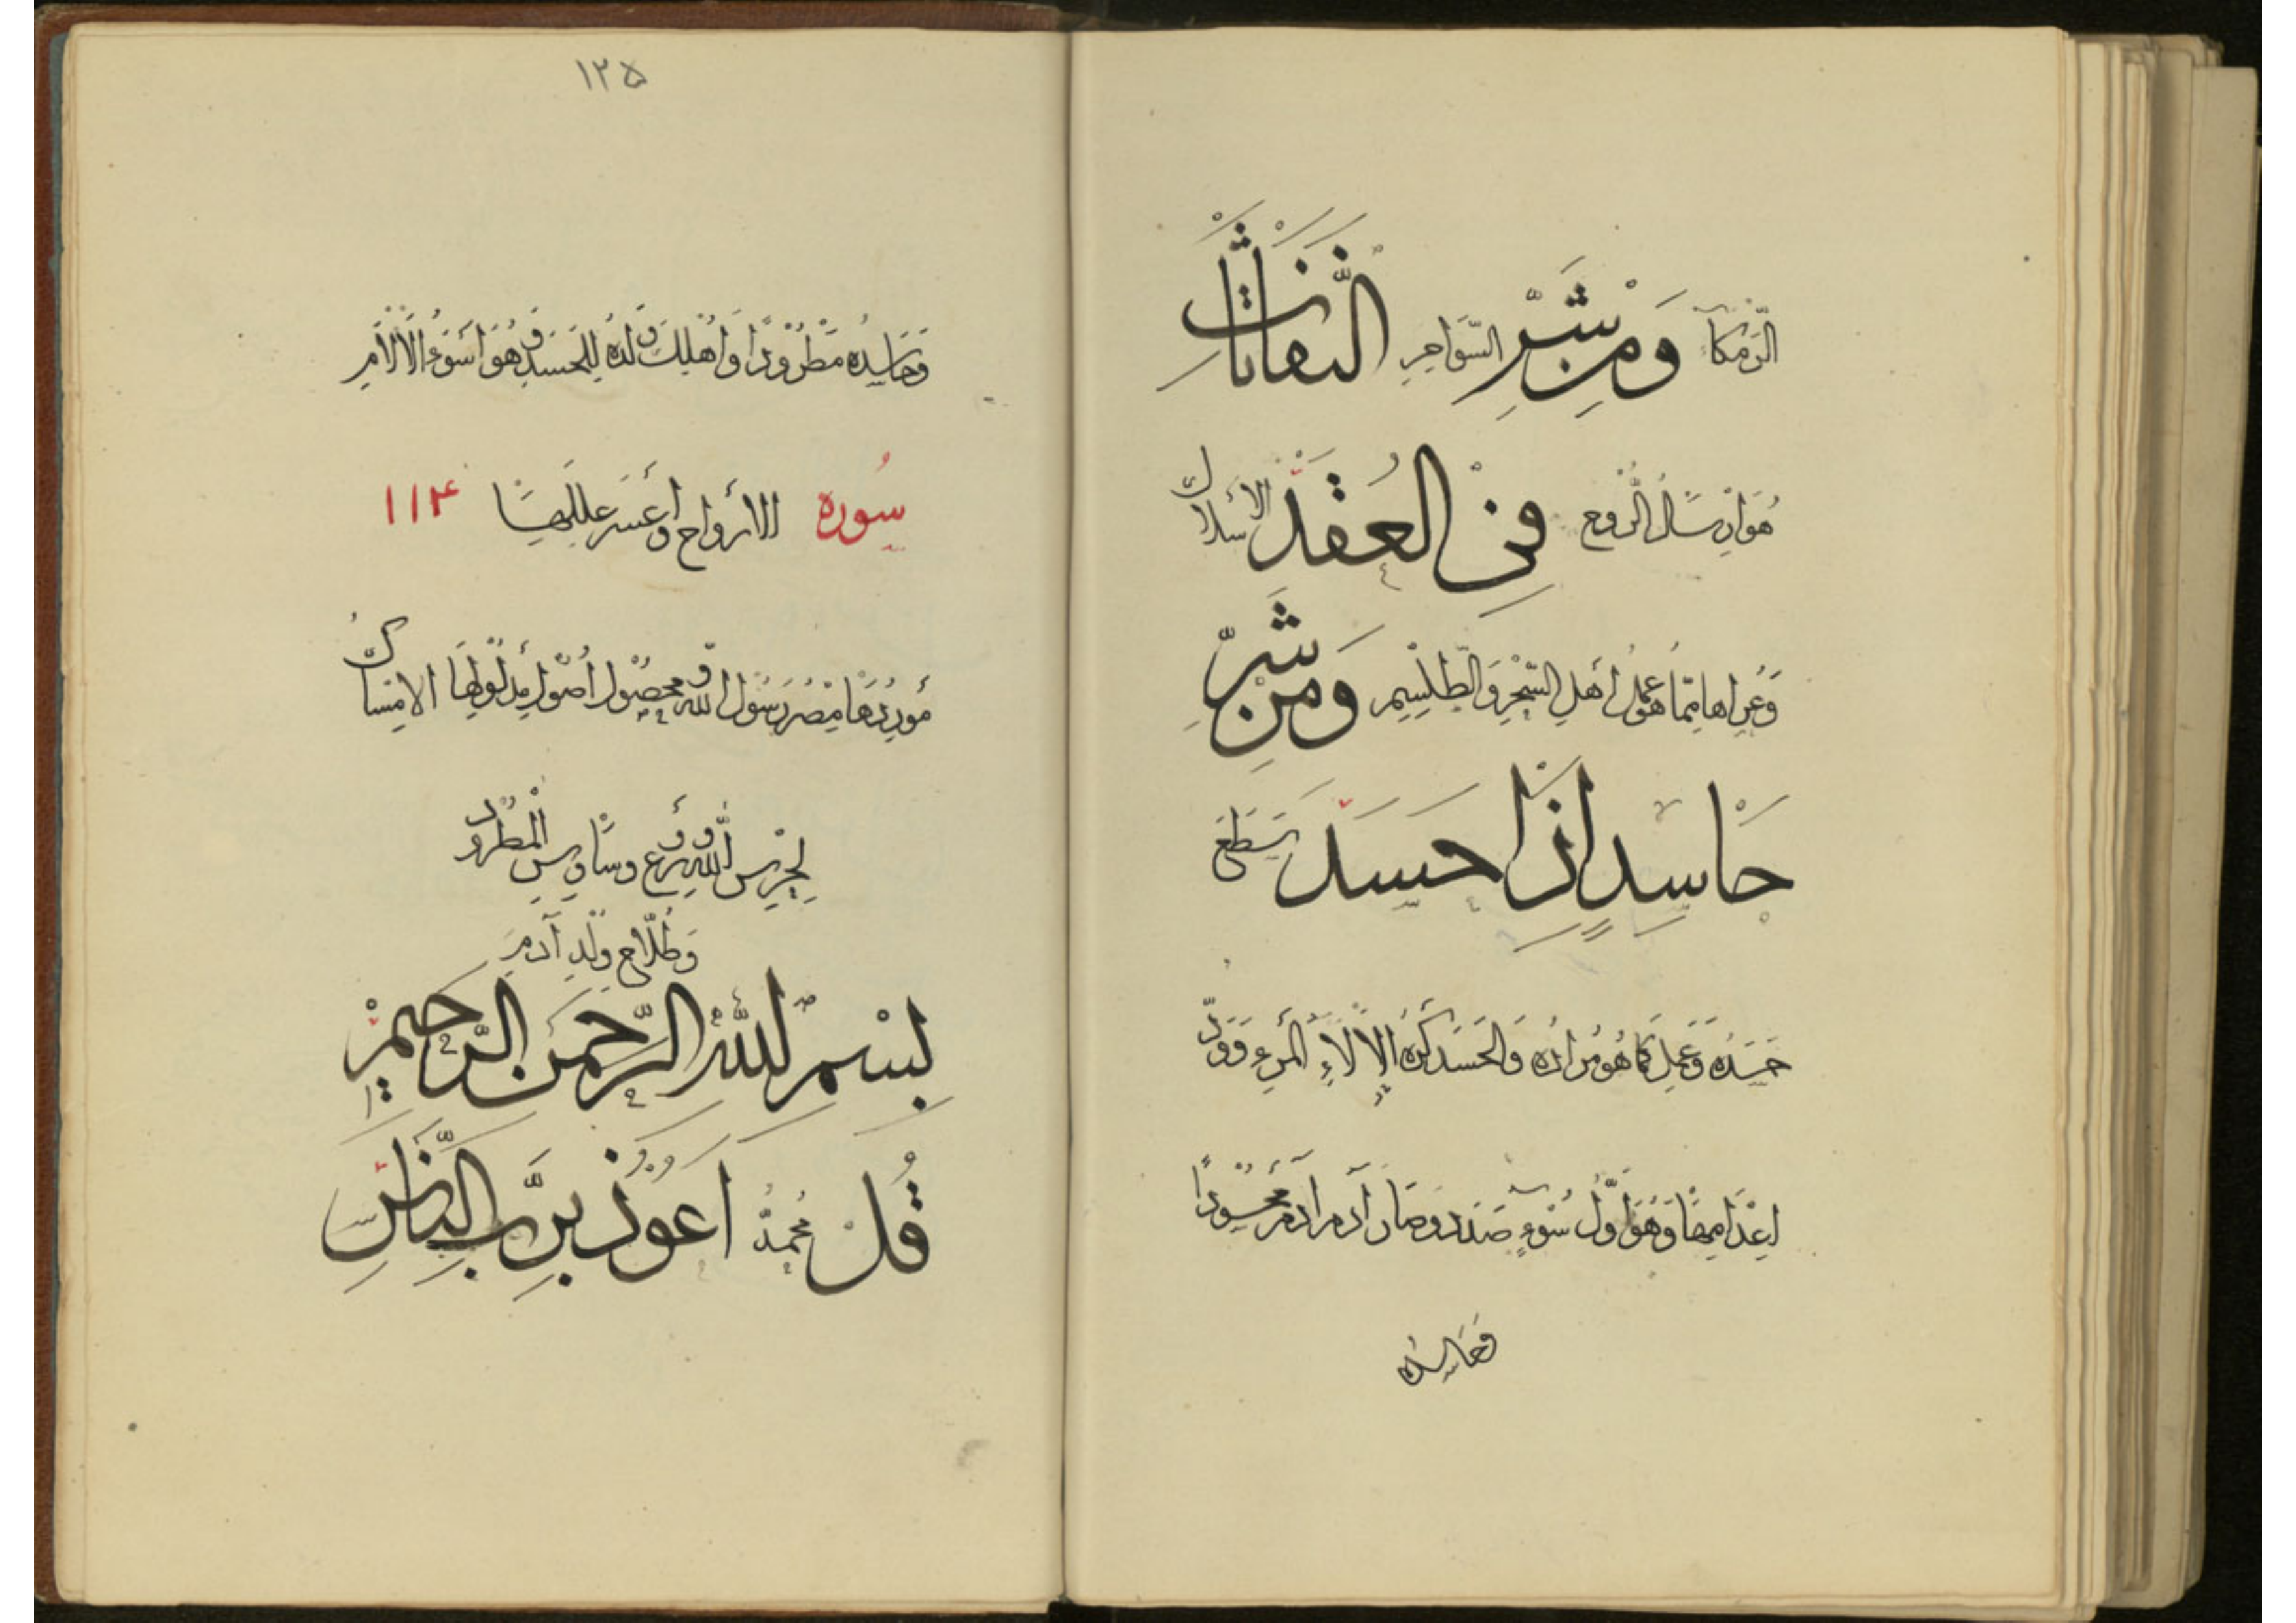 الرمكاء وَمِنْ شَرِّ السَّوَاحِرِ النَّفَّاثَاتِ
هُوَ إِرْسَالُ الرَّوْعِ فِي الْعُقَدِ الأسلاك
وَعُرَاهَا مِمَّا هُوَ عَمَلُ أَهْلِ السِّحْرِ وَالطِّلَّسِمِ وَمِنْ شَرِّ
حَاسِدٍ إِذَا حَسَدَ سَطَعَ
حَسَدُهُ وَعَمِلَ كَمَا هُوَ مُرَادُهُ وَالْحَسَدُ كُرْهُ آلَاءِ الْمَرْءِ وَوَدُّ
إِعْدَامِهَا وَهُوَ أَوَّلُ سُوْءٍ صَدَرَ وَصَارَ آدَمُ مَحْسُوْدًا
فَحَاسِدُهُ
١٢٥
وَحَاسِدُهُ مَطْرُوْدًا وَأَهْلَكَ وَلَدَهُ لِلْحَسَدِ وَهُوَ أَسْوَءُ الْآلَامِ
سُورة الأرواح ١١٤
مَوْرِدُهَا مِصْرُ رَسُوْلِ اللهِ وَمَحْصُوْلُ أُصُوْلِ مَدْلُوْلِهَا الإمساك
لِحَرَسِ اللهِ وَرَوْعِ وَسَاوِسِ الْمَطْرُوْدِ
وَطُلَّاحِ وُلْدِ آدَمَ
بِسْمِ اللهِ الرَّحْمَنِ الرَّحِيْمِ
قُلْ مُحَمَّدُ أَعُوذُ بِرَبِّ النَّاسِ